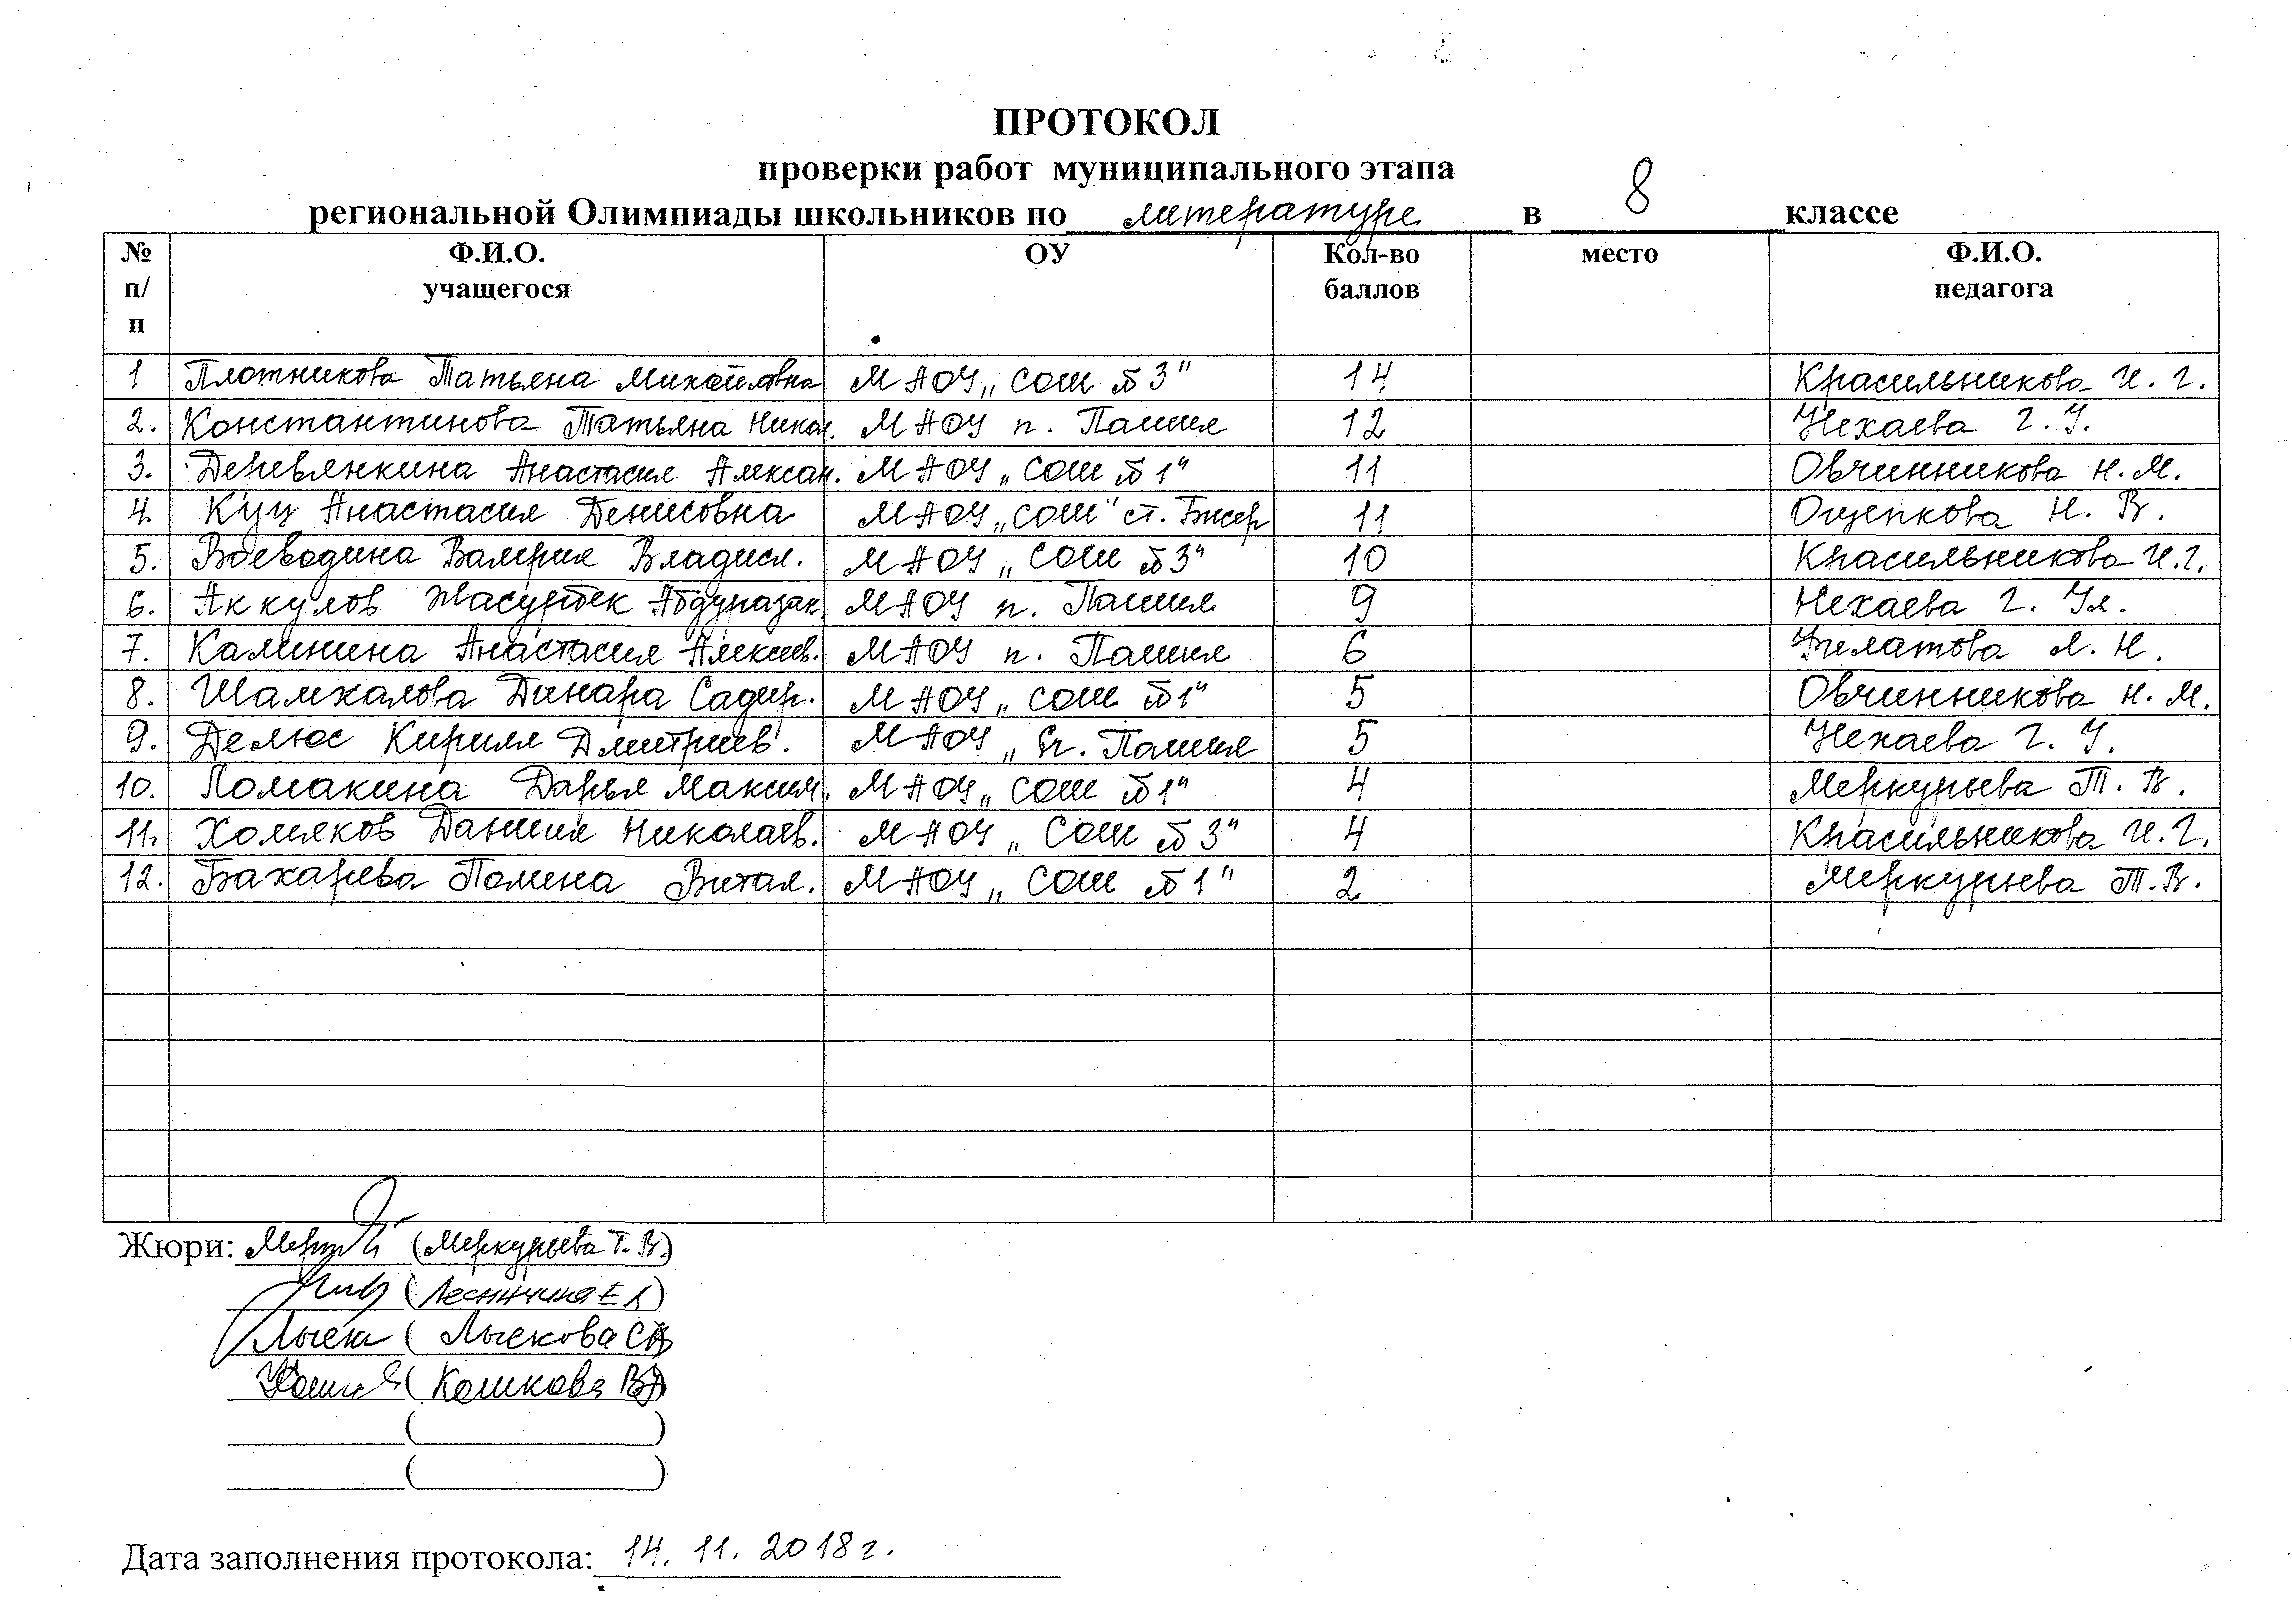 ПРОТОКОЛ
проверки работ муниципального этапа
региональной Олимпиады школьников по литературе в 8 классе
№ п/п Ф.И.О. учащегося ОУ Кол-во баллов место Ф.И.О. педагога
1 Плотникова Татьяна Михайловна МАОУ „СОШ №3" 14 Красильникова И. Г.
2. Константинова Татьяна Никол. МАОУ п. Пашия 12 Нехаева Г. У.
3. Деревянкина Анастасия Алексан. МАОУ „СОШ №1" 11 Овчинникова Н. М.
4. Куц Анастасия Денисовна МАОУ „СОШ" ст. Бисер 11 Ощепкова Н. В.
5. Воеводина Валерия Владисл. МАОУ „СОШ №3" 10 Красильникова И.Г.
6. Аккулов Жасурбек Абдуразак. МАОУ п. Пашия 9 Нехаева Г. Ул.
7. Калинина Анастасия Алексеев. МАОУ п. Пашия 6 Филатова Л. Н.
8. Шамхалова Динара Садир. МАОУ „СОШ №1" 5 Овчинникова Н. М.
9. Делюс Кирилл Дмитриев. МАОУ „ п. Пашия 5 Нехаева Г. У.
10. Ломакина Дарья Максим. МАОУ „СОШ №1" 4 Меркурьева Т. В.
11. Хомяков Даниил Николаев. МАОУ „СОШ №3" 4 Красильникова И. Г.
12. Бахарева Полина Витал. МАОУ „СОШ №1" 2 Меркурьева Т. В.
Жюри: (Меркурьева Т. В)
(Лесничина Е Л)
( Лыскова СА)
( Кошкова ВА)
( )
( )
Дата заполнения протокола: 14. 11. 2018г.